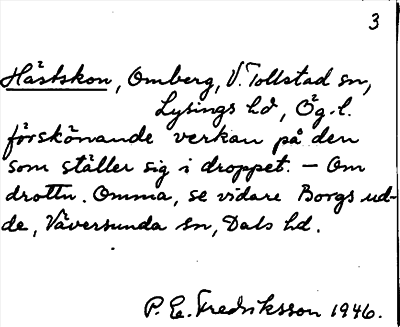 3
Hästskon, Omberg, V. Tollstad sn,
Lysings hd, Ög. l.
förskönande verkan på den
som ställer sig i droppet. — Om
drottn. Omma, se vidare Borgs ud-
de, Väversunda sn, Dals hd.
P. E. Fredriksson 1946.